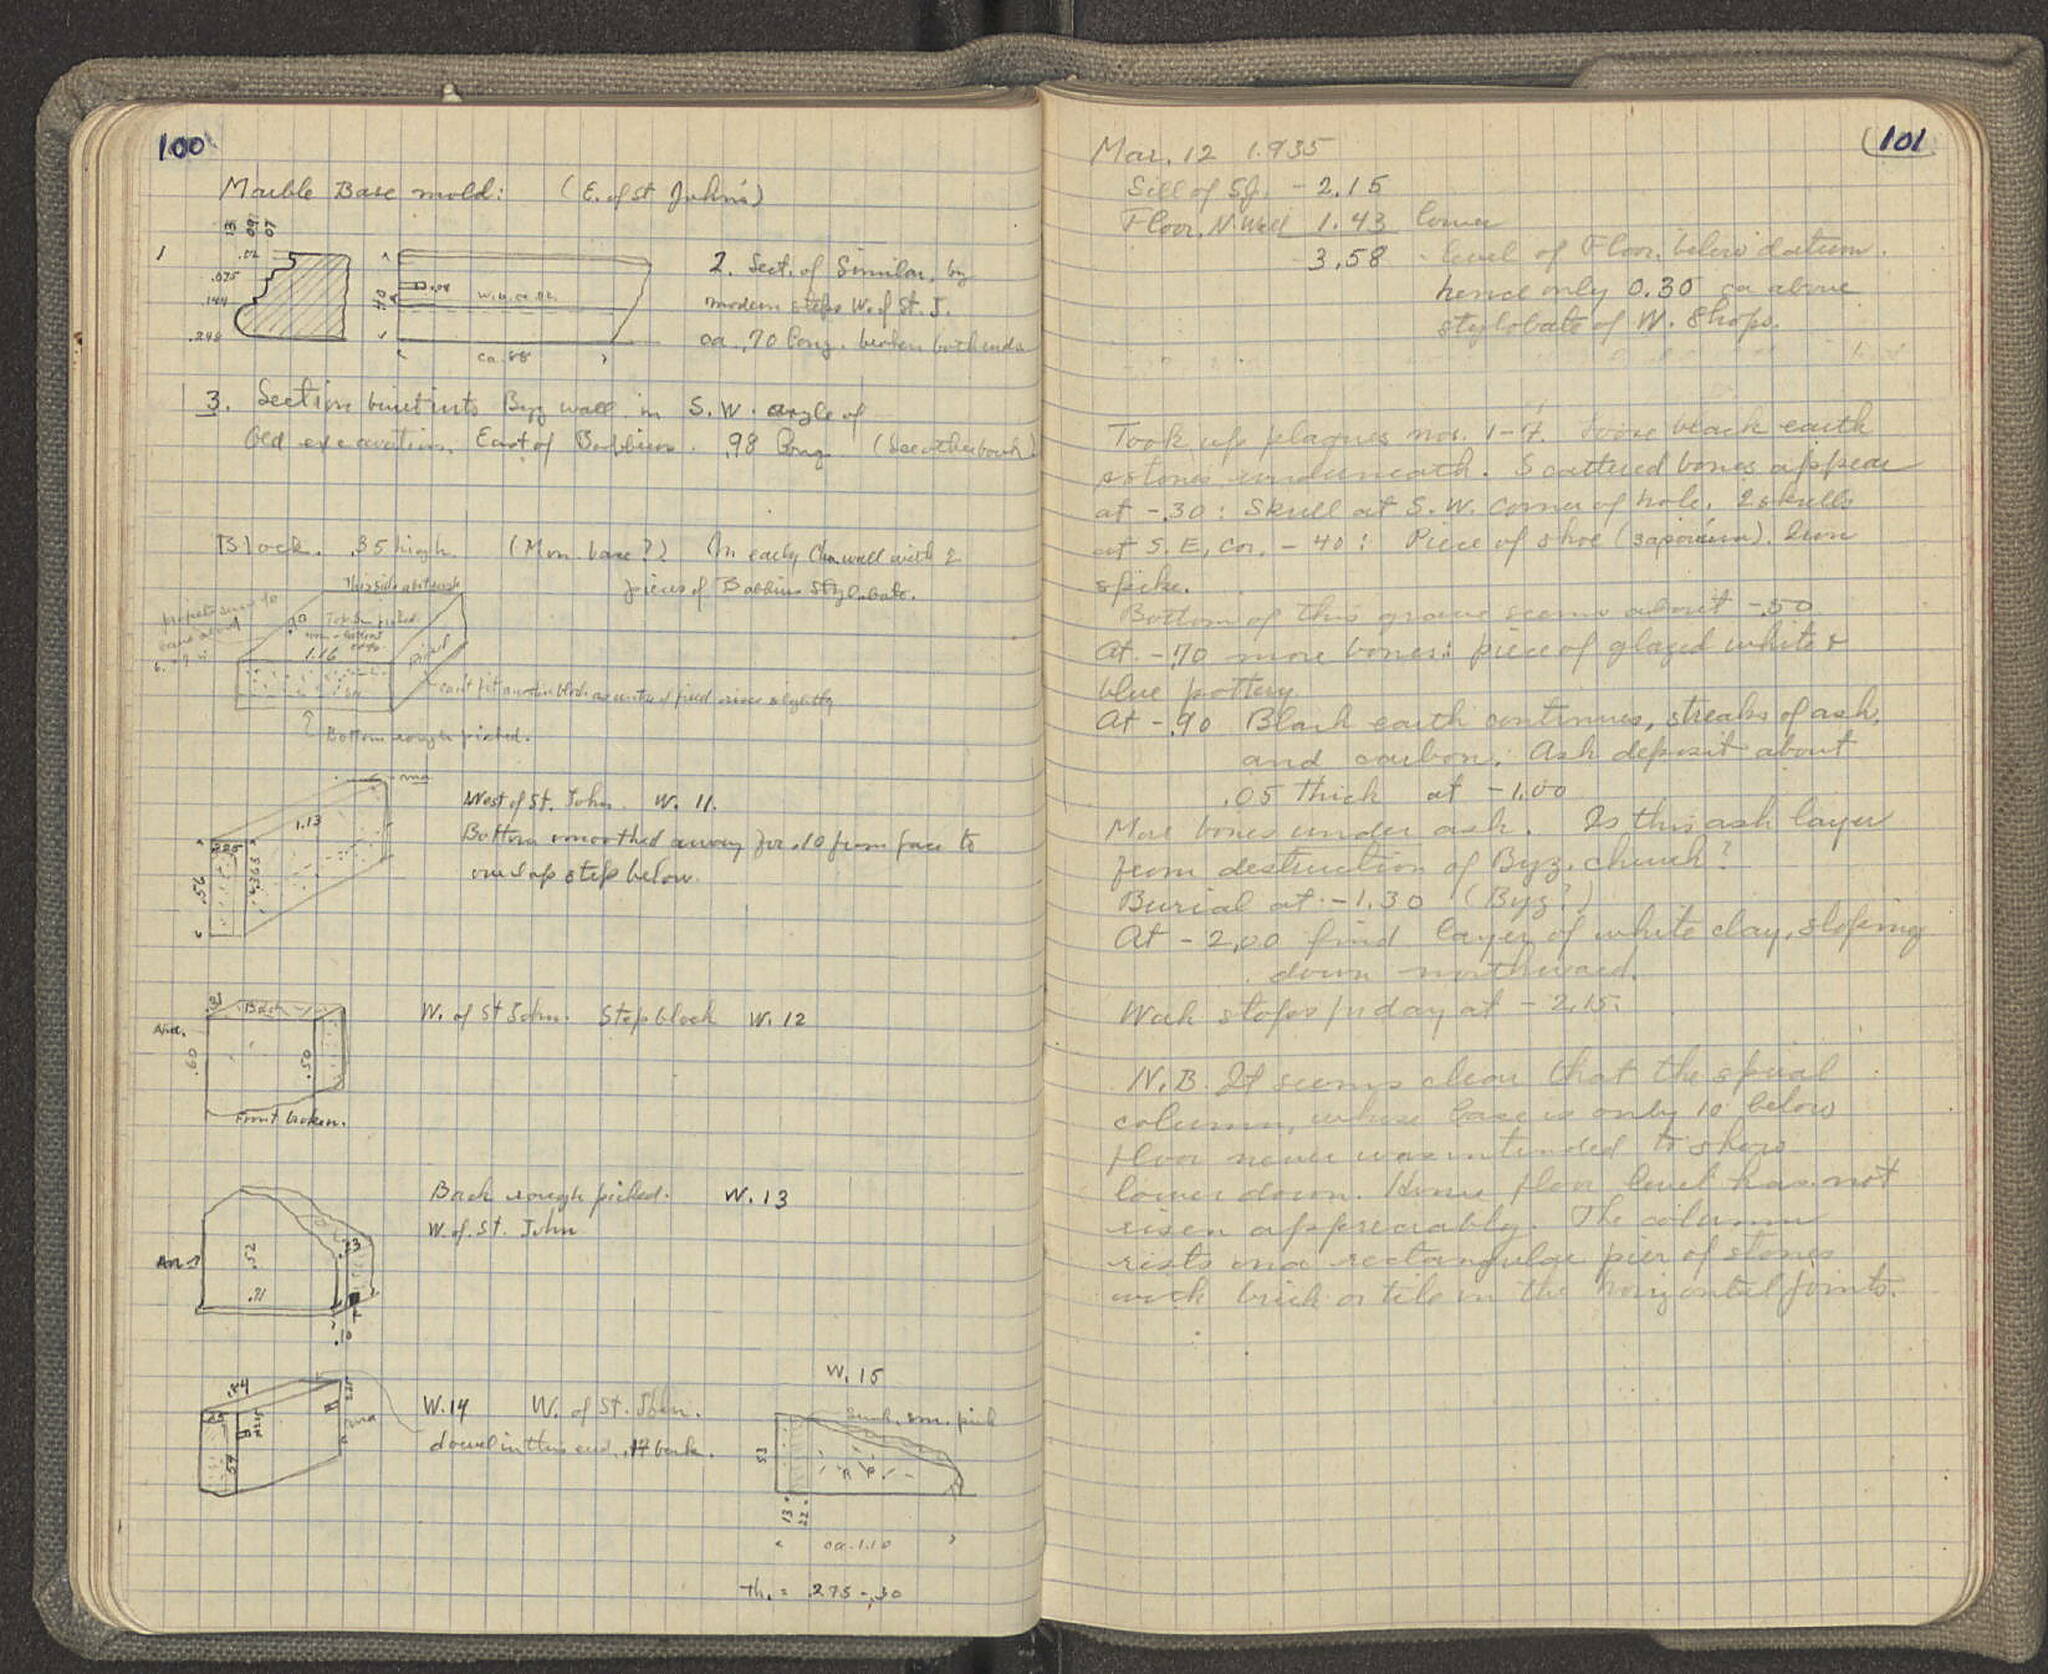 100
Marble Base mold: (E. of St John's)
.13 .09 .07
1
.02
.075
.144
.248
.40
.08
W.U. ca .42.
ca .88
2. Sect. of Similar, by
modern steps W. of St. J.
ca .70 long. broken both ends
3. Section built into Byz wall in S.W. angle of
Old excavation, East of Babbius. .98 long (See other book)
Block. .35 high. (Mon. base?) (In early Chr. wall with 2
pieces of Babbius Stylobate.
This side also rough
.90
Top Sm picked
1.16
can't fit another block as unturned picked rises slightly
Bottom rough picked.
ma
1.13
.225
.56
.365
West of St. John. W. 11.
Bottom smoothed away for .10 from face to
overlap step below.
.31 Back
And.
.60
.50
Front broken.
W. of St John. Step block W. 12
Back rough picked. W. 13
W. of St. John
An.
.52
.23
.71
.10
.84
.25
.59
W. 14 W. of St. John.
dowel in this end, .17 back.
W. 15
Sunk, sm. pick
.53
.13
.22
ca. 1.10
Th. = .275-.30
101
Mar. 12 1935
Sill of SJ. - 2.15
Floor, N. Wall 1.43 lower
- 3.58 - level of Floor below datum.
hence only 0.30 ca above
stylobate of W. Shops.
Took up plaques nos. 1-7. Loose black earth
& stones underneath. Scattered bones appear
at -.30: Skull at S.W. corner of hole. 2 skulls
at S.E. Cor. -.40: Piece of shoe. Iron
spike.
Bottom of this grave seems about -.50
At -.70 more bones: piece of glazed white &
blue pottery
At -.90 Black earth continues, streaks of ash,
and carbon. Ash deposit about
.05 thick at -1.00
More bones under ash. Is this ash layer
from destruction of Byz. church?
Burial at -1.30 (Byz?)
At -2.00 find layer of white clay, sloping
down northward.
Work stops for day at -2.15.
N.B. It seems clear that the spiral
column, whose base is only 10 below
floor never was intended to show
lower down. Hence floor level has not
risen appreciably. The column
rests on a rectangular pier of stones
with brick or tile in the horizontal joints.